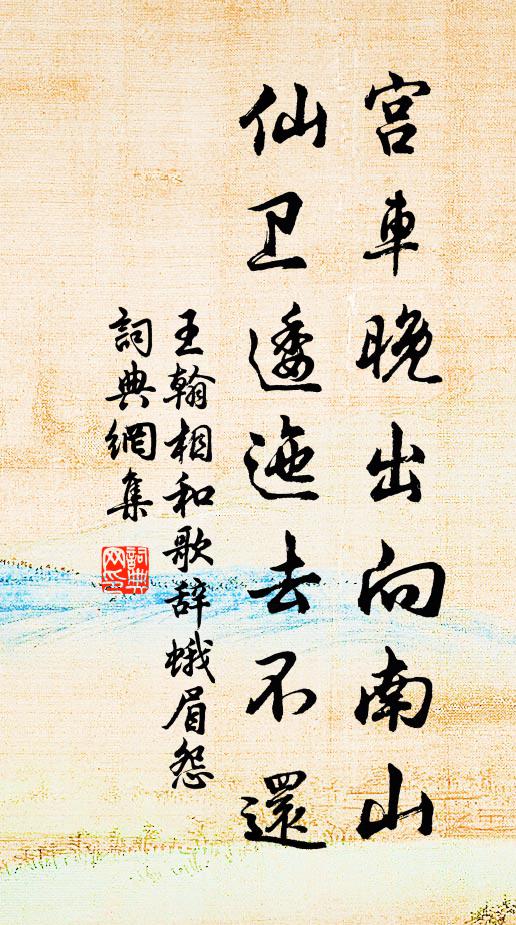 宫车晚出向南山
仙卫逶迤去不還
王翰相和歌辞蛾眉怨
詞典網集